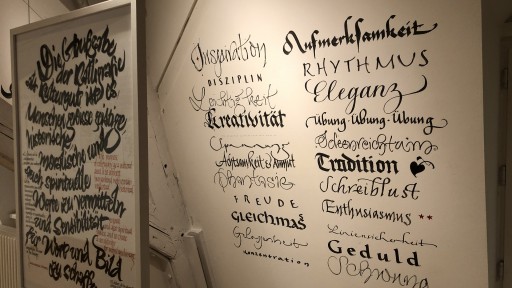 Die Aufgabe
der Kalligrafie
als Kulturgut ist es
Menschen
historische
moralische und
auch spirituelle
Werte zu vermitteln
und Sensibilität
für Wort und Bild
zu schaffen
Inspiration
DISZIPLIN
Leichtigkeit
Kreativität
Achtsamkeit & Anmut
Phantasie
FREUDE
GLEICHMAß
Gelegenheit
Konzentration
Aufmerksamkeit
RHYTHMUS
Eleganz
Übung-Übung-Übung
Ideenreichtum
Tradition
Schreiblust
Enthusiasmus **
Liniensicherheit
Geduld
Schwung